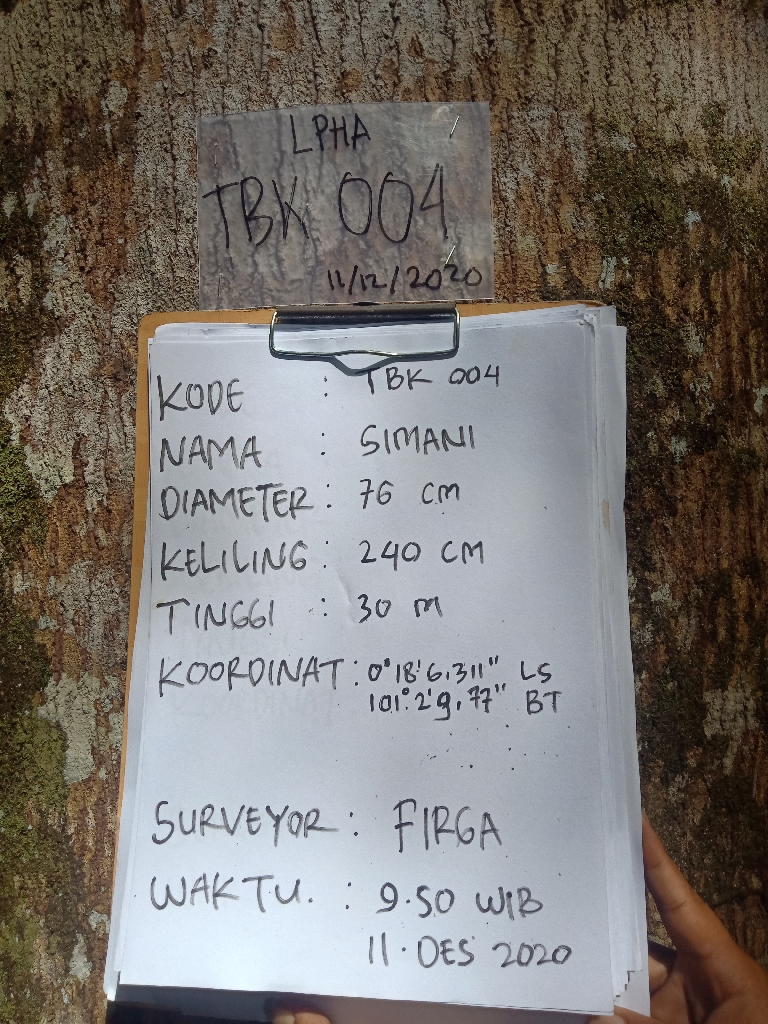 LPHA
TBK 004
11/12/2020
KODE : TBK 004
NAMA : SIMANI
DIAMETER : 76 CM
KELILING : 240 CM
TINGGI : 30 M
KOORDINAT : 0°18'6,311" LS
101°2'9,77" BT
SURVEYOR : FIRGA
WAKTU. : 9.50 WIB
11. DES 2020